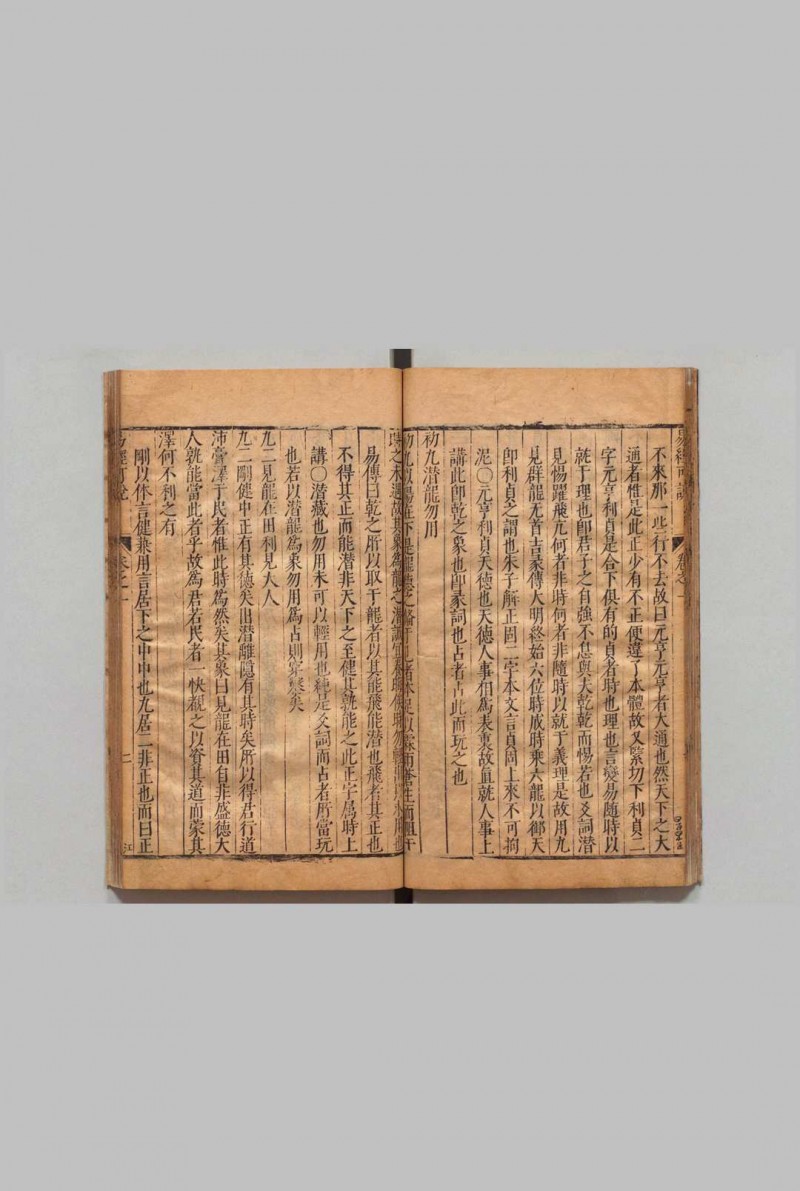 不來那一些行不去故曰元亨元亨者大通也然天下之大
通者惟是此正少有不正便違了本體故又緊切下利貞二
字元亨利貞是合下俱有的貞者時也理也言變易隨時以
就于理也卽君子之自強不息與大乾乾而惕若也爻詞潛
見惕躍飛亢何者非時何者非隨時以就于義理是故用九
見群龍无首吉彖傳大明終始六位時成時乘六龍以御天
卽利貞之謂也朱子解正固二字本文言貞固上來不可拘
泥〇元亨利貞天德也天德人事相爲表裏故直就人事上
講此卽乾之象也卽彖詞也占者占此而玩之也
初九潛龍勿用
易傳曰乾之所以取于龍者以其能飛能潛也飛者其正也
不得其正而能潛非天下之至健其孰能之此正字属時上
講〇潛藏也勿用未可以輕用也純是爻詞而占者所當玩
也若以潛龍爲象勿用爲占則穿鑿矣
九二見龍在田利見大人
九二剛健中正有其德矣出潛離隱有其時矣所以得君行道
沛膏澤于民者惟此時爲然矣其象曰見龍在田自非盛德大
人孰能當此者乎故爲君若民者一快覩之以資其道而蒙其
澤何不利之有
剛以体言健兼用言居下之中中也九居二非正也而曰正
卷之一
二
江